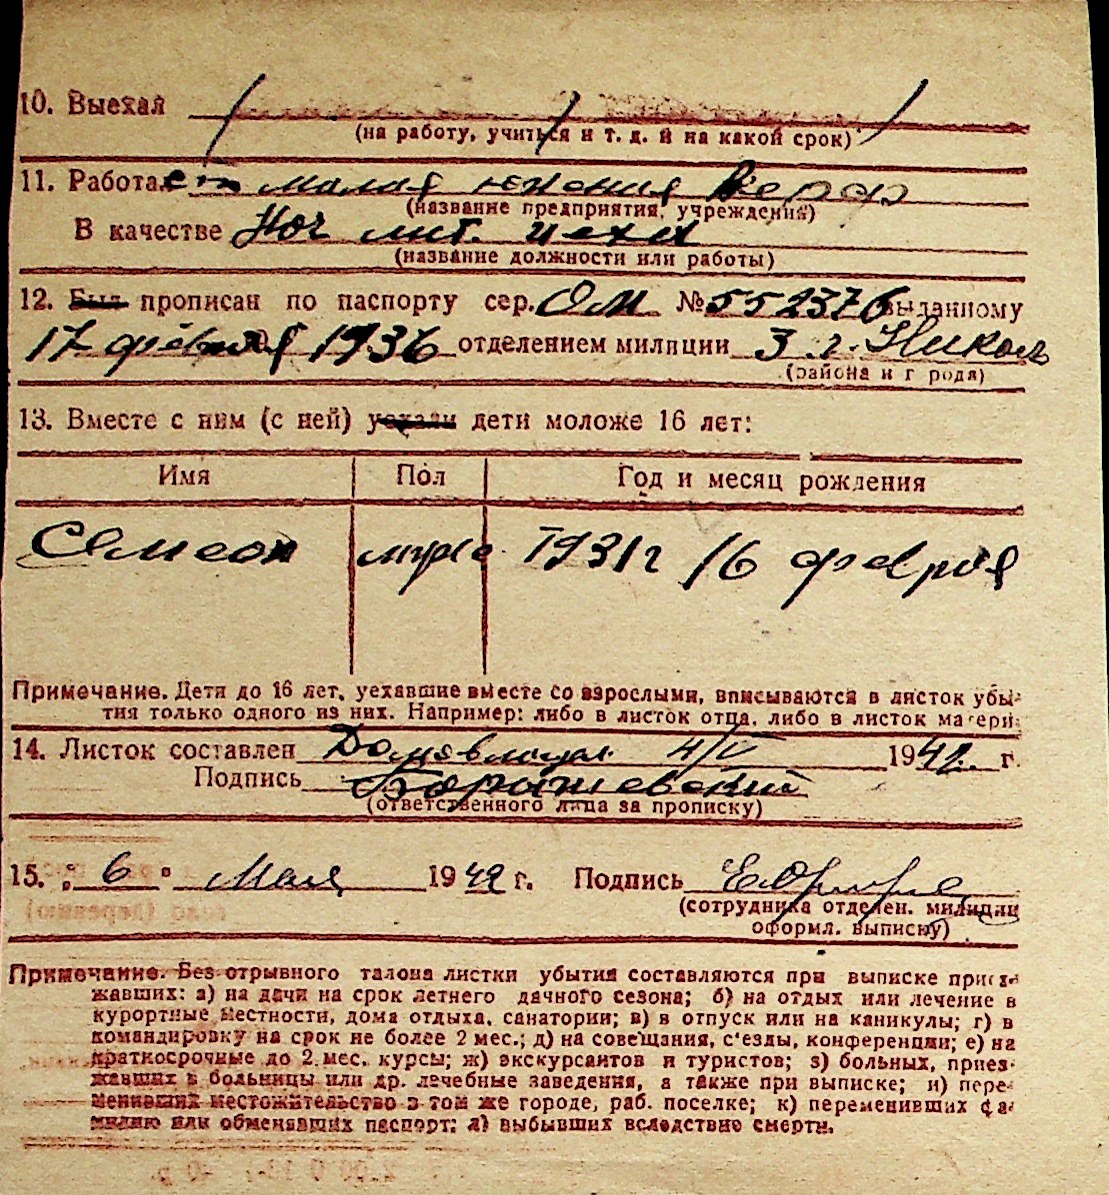 10. Выехал
(на работу, учиться и т. д. и на какой срок)
11. Работает малая
(название предприятия, учреждения)
В качестве Нач лит. цеха
(название должности или работы)
12. Был прописан по паспорту сер. ОМ № 552376 выданному
17 февраля 1936 отделением милиции 3 г. Николь
(района и г рода)
13. Вместе с ним (с ней) уехали дети моложе 16 лет:
Имя Пол Год и месяц рождения
Семеон муж 1931г 16 февраля
Примечание. Дети до 16 лет, уехавшие вместе со взрослыми, вписываются в листок убы-
тия только одного из них. Например: либо в листок отца, либо в листок матери.
14. Листок составлен 4/V 1942 г.
Подпись
(ответственного лица за прописку)
15. " 6 " Мая 1942 г. Подпись
(сотрудника отделен. милиции
оформл. выписку)
Примечание. Без отрывного талона листки убытия составляются при выписке приез-
жавших: а) на дачи на срок летнего дачного сезона; б) на отдых или лечение в
курортные местности, дома отдыха, санатории; в) в отпуск или на каникулы; г) в
командировку на срок не более 2 мес.; д) на совещания, с'езды, конференции; е) на
краткосрочные до 2 мес. курсы; ж) экскурсантов и туристов; з) больных, приез-
жавших в больницы или др. лечебные заведения, а также при выписке; и) пере-
менивших местожительство в том же городе, раб. поселке; к) переменивших фа-
милию или обменявших паспорт; л) выбывших вследствие смерти.